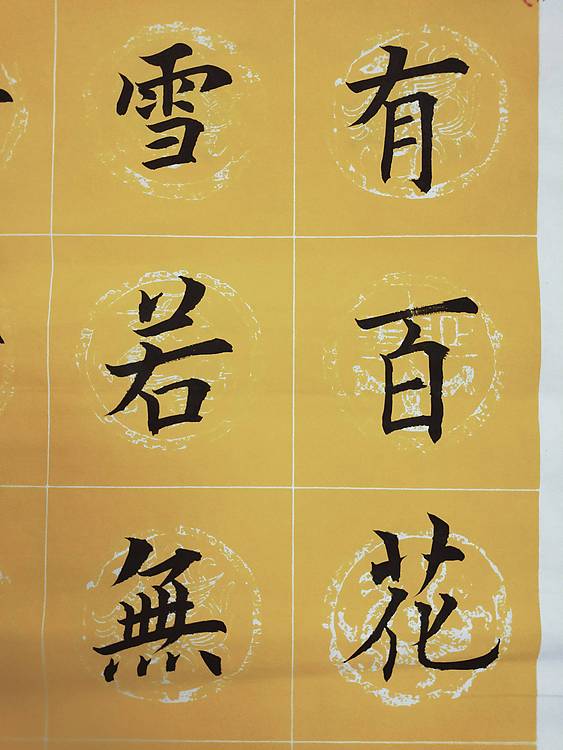 有百花
雪若無